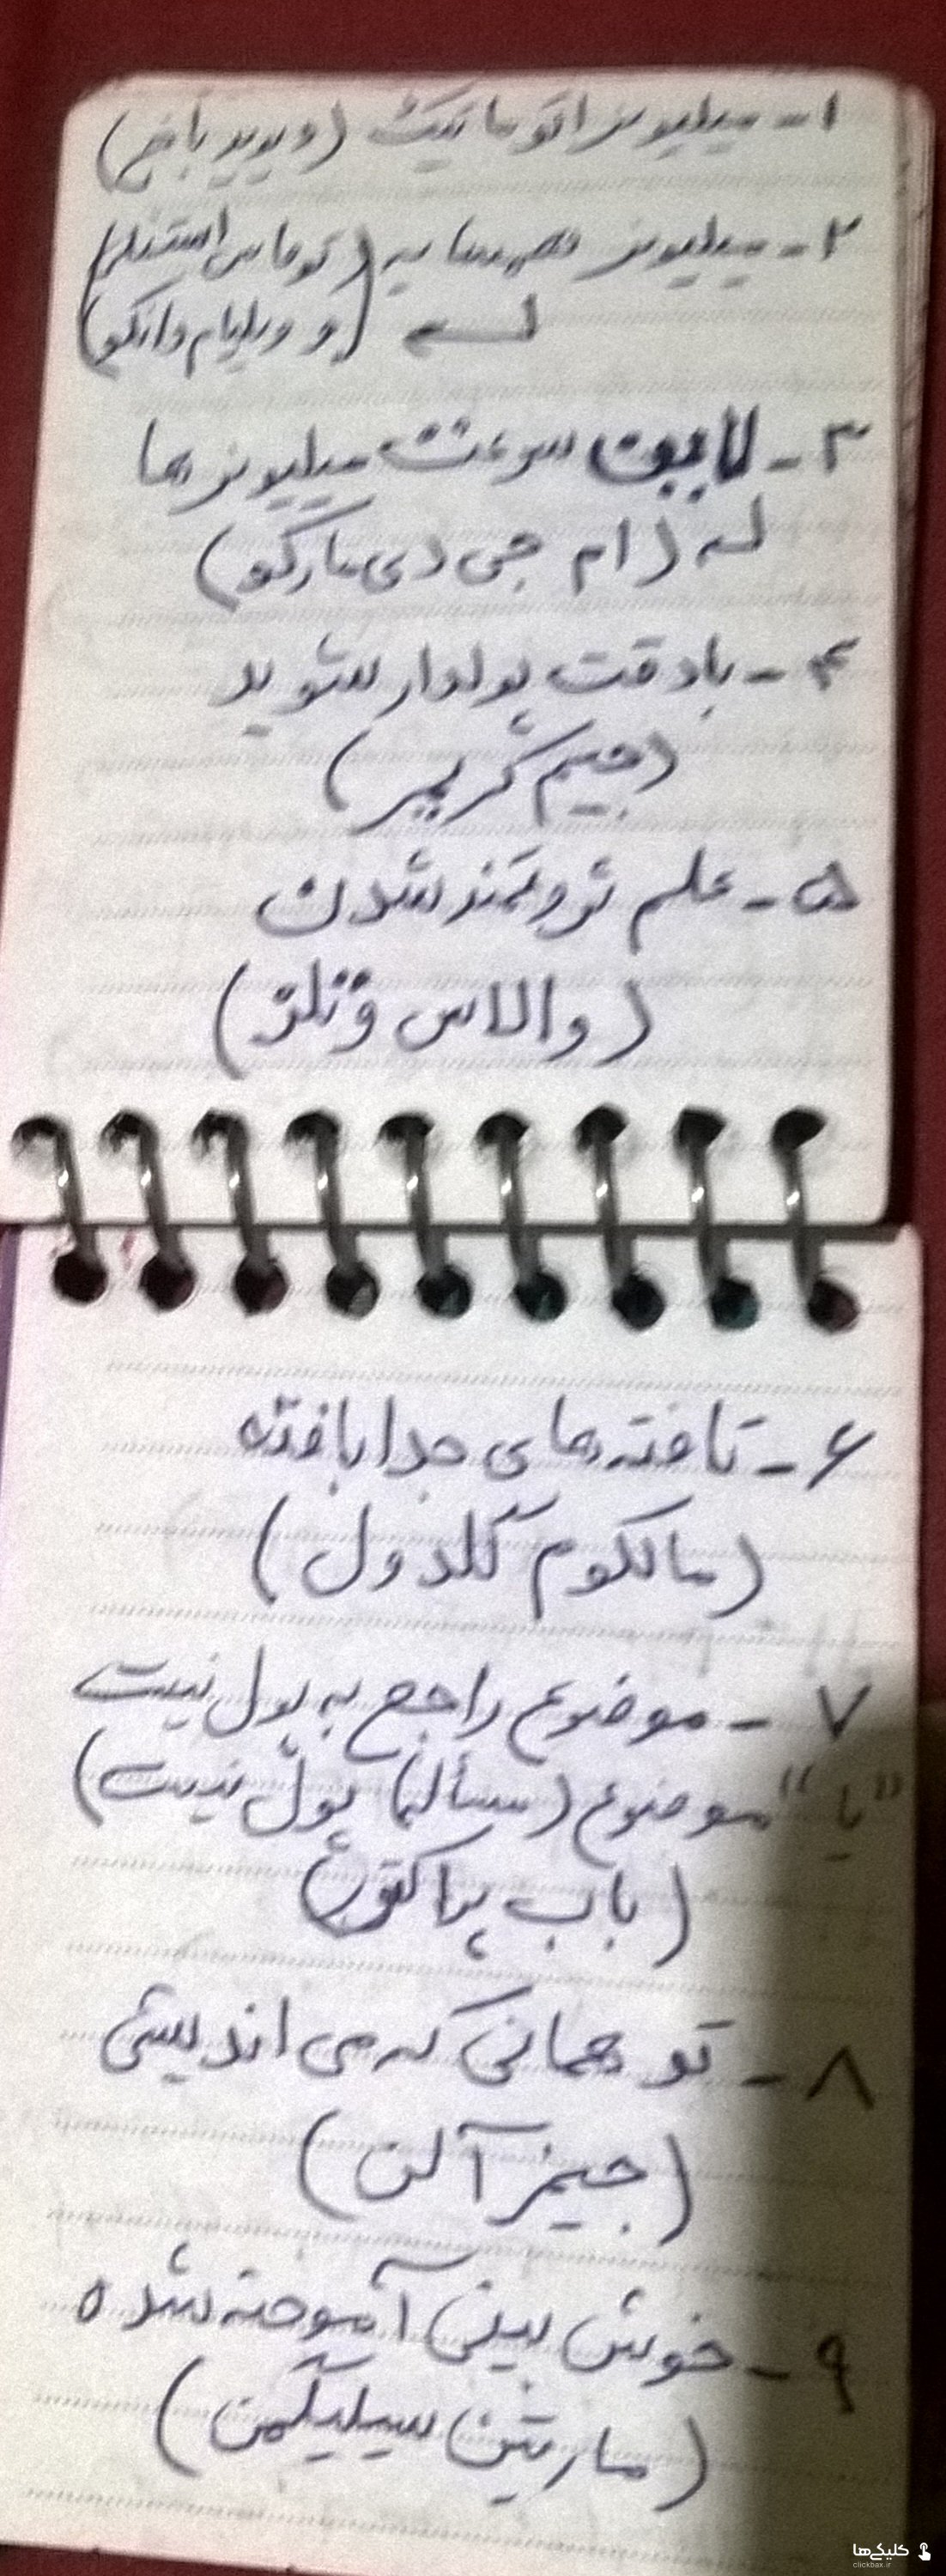 ۱- میلیونر اتوماتیک (دیوید باخ)
۲- میلیونر همسایه (توماس استنلی
و ویلیام دانکو)
۳- لاین سرعت میلیونرها
(ام جی دی مارکو)
۴- با دقت پولدار شوید
(جیم کریمر)
۵- علم ثروتمند شدن
(والاس وتلز)
۶- تافته های جدا بافته
(مالکوم گلدول)
۷- موضوع راجع به پول نیست
"یا" موضوع (مسأله) پول نیست)
(باب پراکتور)
۸- تو همانی که می اندیشی
(جیمز آلن)
۹- خوش بینی آموخته شده
(مارتین سیلیگمن)
کلیکی‌ها
clickbax.ir